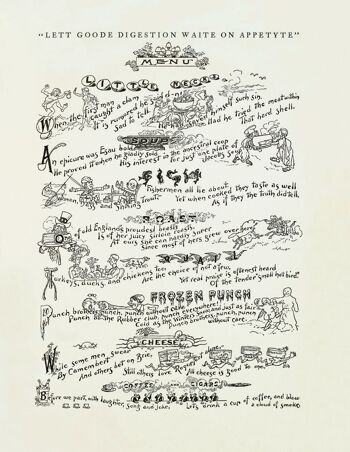 "LETT GOODE DIGESTION WAITE ON APPETYTE"
MENU
LITTLE NECKS
When the first man caught a clam
It is rumored he said d-n
Sad to tell
He had never himself such sin,
lad he tried the meat within
That hard shell.
SOUP
An epicure was Esau bold
He proved it when he gladly sold
His interest in the ancestral coop
For just one plate of
Jacob's soup
FISH
Fishermen all lie about
and
Trout
Yet when cooked they taste as well
As if they the Truth did tell
ROAST
Of old England's proudest beasts
Is of her juicy sirloin roasts.
At ours she can hardly sneer
Since most of hers grew over here
Turkeys, ducks, and chickens too
Are the choice of not a few.
Yet real praise is oftenest heard
Of the tender small hot bird.
FROZEN PUNCH
Punch brothers punch, punch without care
Punch at the Rubber club, punch everywhere!
Cold as the Winters and just as fair
Punch brothers punch, and punch
without care.
CHEESE
While some men swear
By Camembert
And others bet on Brie,
Still others love
All cheese is good to me.
COFFEE AND CIGARS
Before we part, with laughter, song and joke,
Let's drink a cup of coffee, and blow
a cloud of smoke